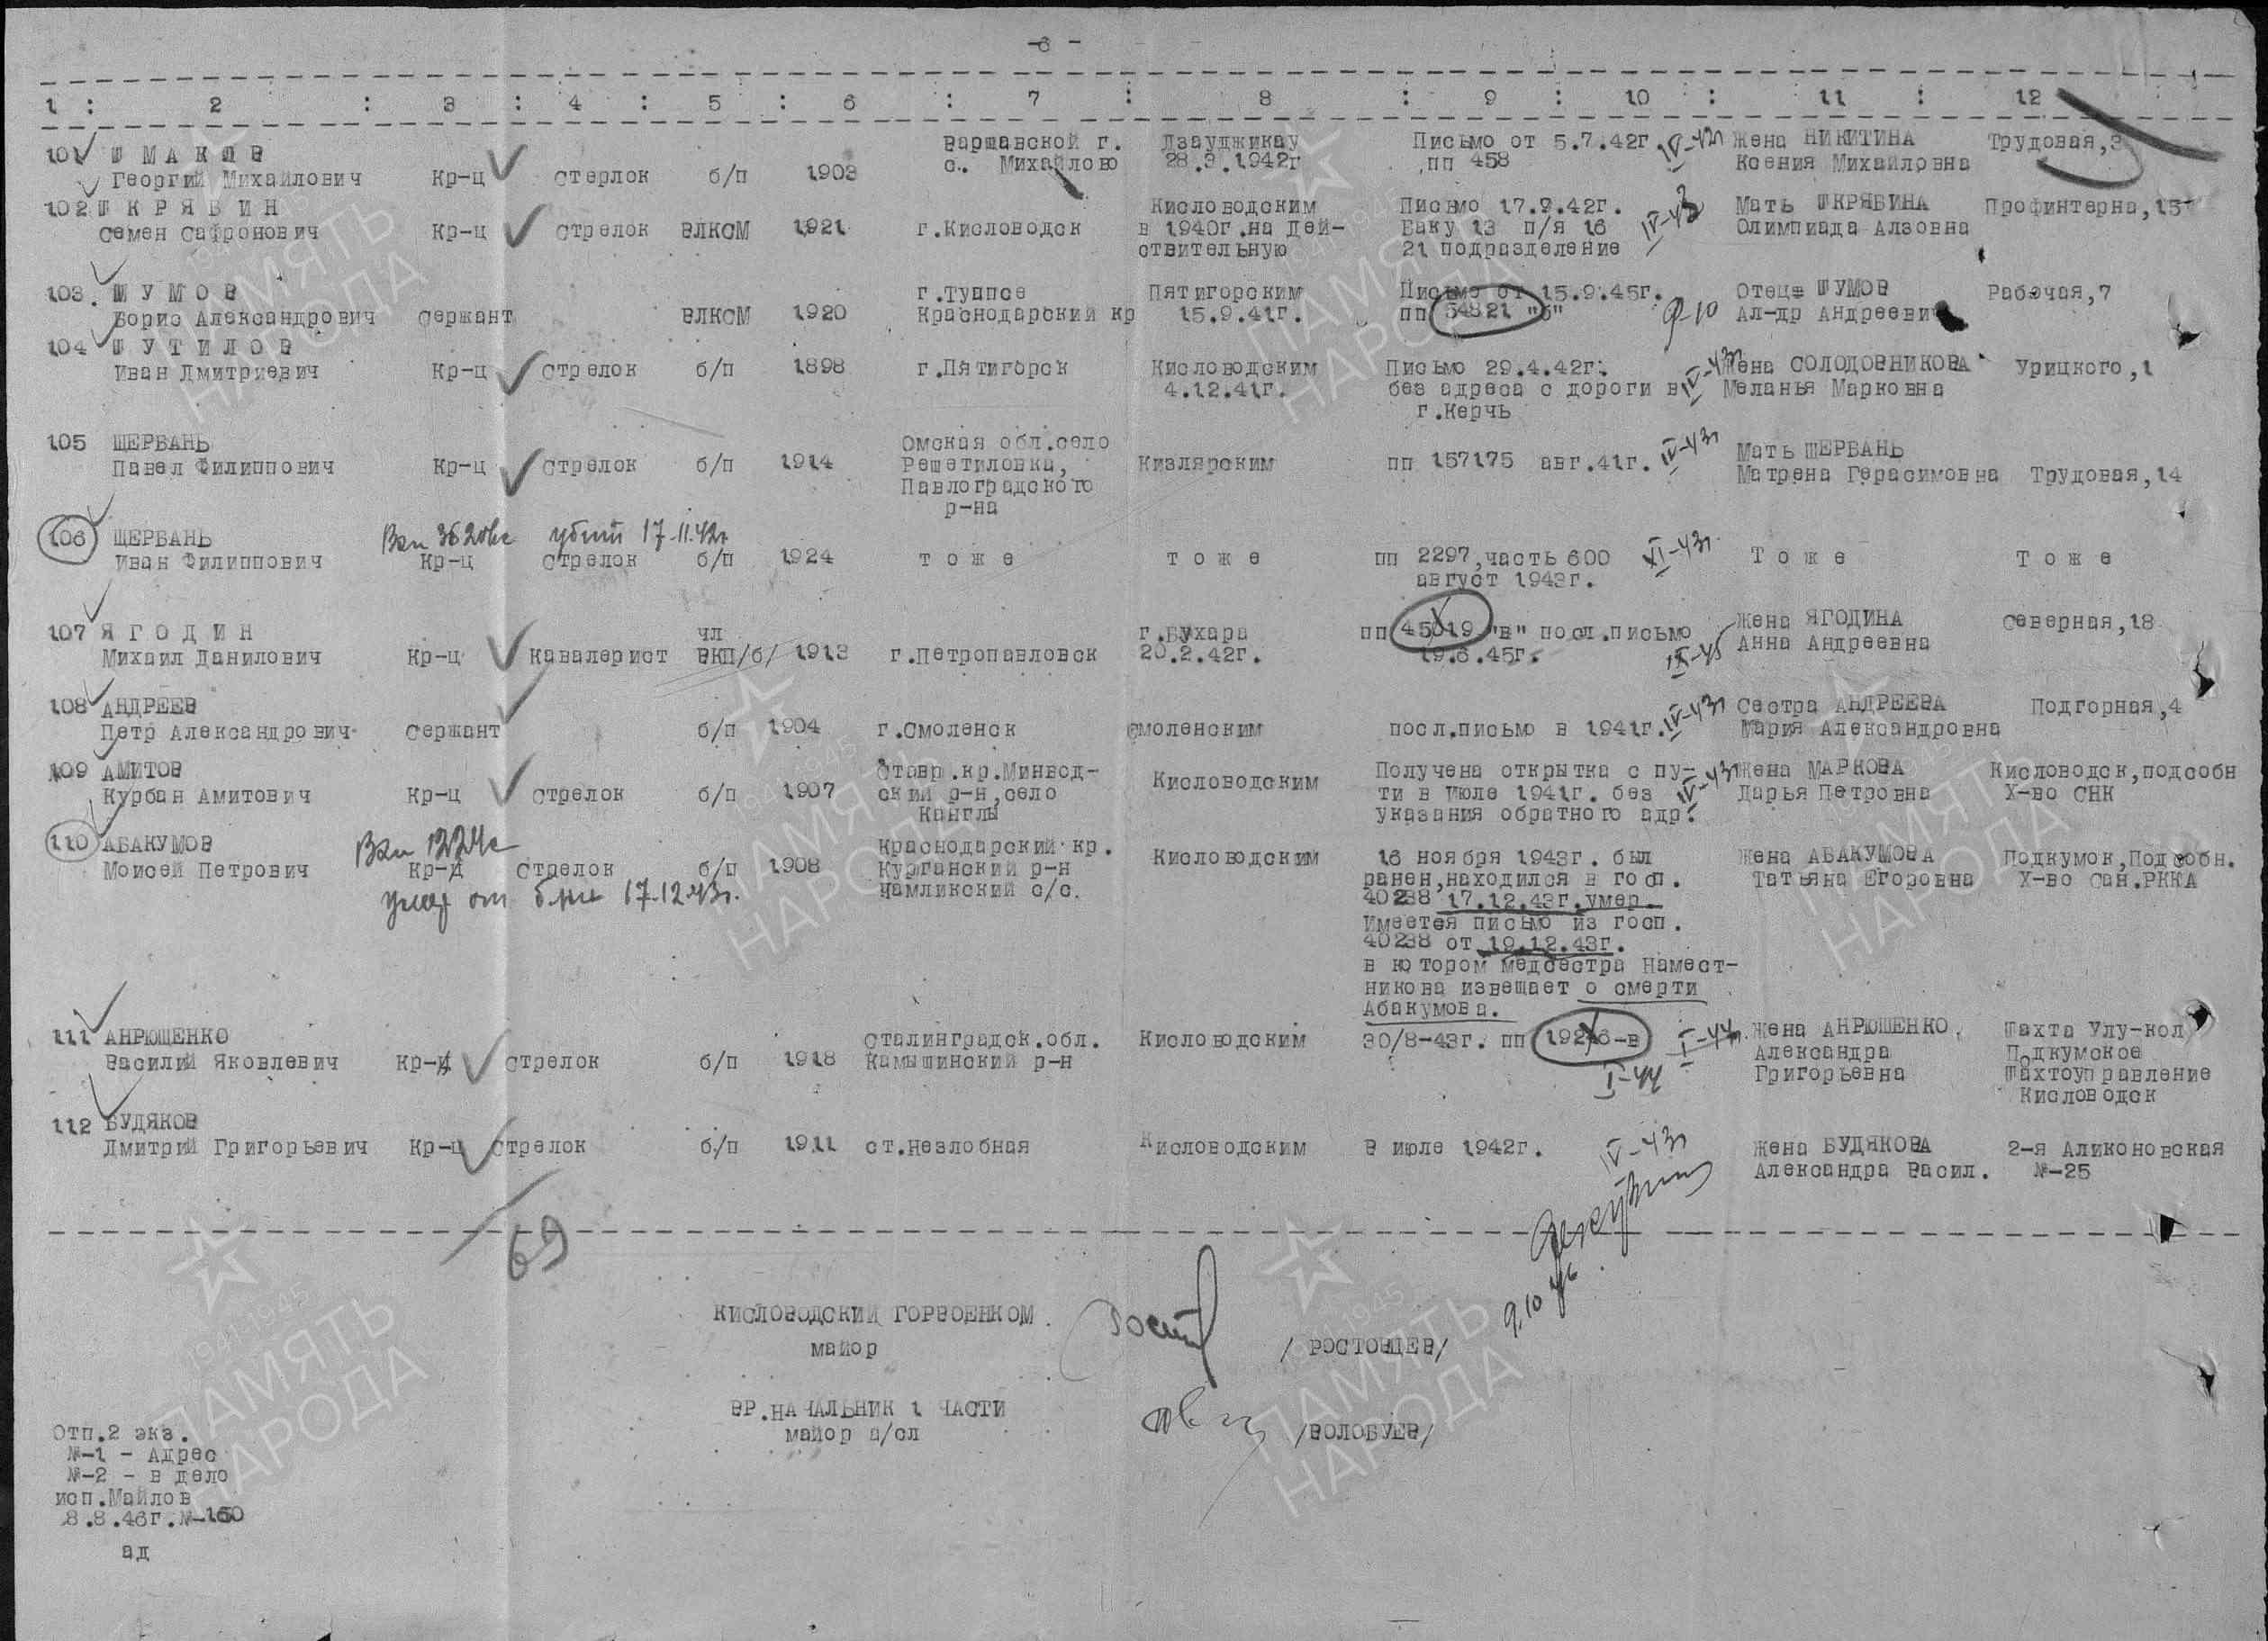 -6-
1 : 2 : 3 : 4 : 5 : 6 : 7 : 8 : 9 : 10 : 11 : 12
101 ШМАКОВ Георгий Михайлович Кр-ц стерлок б/п 1903 Варшавской г. с. Михайлово Дзауджикау 28.3.1942г Письмо от 5.7.42г. пп 458 IV-43г Жена НИКИТИНА Ксения Михайловна Трудовая,3
102 ШКРЯБИН Семен Сафронович Кр-ц стрелок ВЛКСМ 1921 г.Кисловодск Кисловодским в 1940г.на дей-
ствительную Письмо 17.9.42г. Баку 13 п/я 16 21 подразделение IV-43 Мать ШКРЯБИНА Олимпиада Алзовна Профинтерна,15
103. ШУМОВ Борис Александрович сержант ВЛКСМ 1920 г.Туапсе Краснодарский кр Пятигорским 15.9.41г. Письмо от 15.9.45г. пп 54821 "б" 9-10 Отец ШУМОВ Ал-др Андреевич Рабочая,7
104 ШУТИЛОВ Иван Дмитриевич Кр-ц стрелок б/п 1898 г.Пятигорск Кисловодским 4.12.41г. Письмо 29.4.42г. без адреса с дороги в г.Керчь IV-43г Жена СОЛОДОВНИКОВА Меланья Марковна Урицкого,1
105 ЩЕРБАНЬ Павел Филиппович Кр-ц стрелок б/п 1914 Омская обл.село Решетиловка, Павлоградского р-на Кизлярским пп 157175 авг.41г. IV-43г Мать ЩЕРБАНЬ Матрена Герасимовна Трудовая,14
106 ЩЕРБАНЬ Иван Филиппович убит 17.11.42г Кр-ц стрелок б/п 1924 тоже тоже пп 2297,часть 600 август 1943г. XI-43г. Тоже Тоже
107 ЯГОДИН Михаил Данилович Кр-ц Кавалерист чл ВКП/б/ 1913 г.Петропавловск г.Бухара 20.2.42г. пп 45019 "в" посл.письмо 19.6.45г. IX-45 Жена ЯГОДИНА Анна Андреевна Северная,18
108 АНДРЕЕВ Петр Александрович Сержант б/п 1904 г.Смоленск смоленским посл.письмо в 1941г. IV-43г Сестра АНДРЕЕВА Мария Александровна Подгорная,4
109 АМИТОВ Курбан Амитович Кр-ц стрелок б/п 1907 Ставр.кр.Минвод-
ский р-н,село Канглы Кисловодским Получена открытка с пу-
ти в июле 1941г. без указания обратного адр. IV-43г Жена МАРКОВА Дарья Петровна Кисловодск,подсобн Х-во СНК
110 АБАКУМОВ Моисей Петрович Кр-ц умер от 17.12.43г. Стрелок б/п 1908 Краснодарский кр. Курганский р-н Чамликский с/с. Кисловодским 16 ноября 1943г. был
ранен,находился в госп.
40238 17.12.43г.умер.
Имеется письмо из госп.
40238 от 19.12.43г.
в котором медсестра Намест-
никова извещает о смерти
Абакумова. Жена АБАКУМОВА Татьяна Егоровна Подкумок,Подсобн. Х-во Сан.РККА
111 АНРЮЩЕНКО Василий Яковлевич Кр-ц стрелок б/п 1918 Сталинградск.обл. Камышинский р-н Кисловодским 30/8-43г. пп 19246-в I-44г. I-44 Жена АНРЮЩЕНКО Александра Григорьевна Шахта Улу-кол Подкумское Шахтоуправление Кисловодск
112 БУДЯКОВ Дмитрий Григорьевич Кр-ц стрелок б/п 1911 ст.Незлобная Кисловодским В июле 1942г. IV-43г Жена БУДЯКОВА Александра Васил. 2-я Аликоновская №-25
69
9.10.46
КИСЛОВОДСКИЙ ГОРВОЕНКОМ
майор /РОСТОВЦЕВ/
ВР.НАЧАЛЬНИК 1 ЧАСТИ
майор а/сл /ВОЛОБУЕВ/
Отп.2 экз.
№-1 - Адрес
№-2 - в дело
исп.Майлов
8.8.46г.№-150
ад
1941 1945
ПАМЯТЬ
НАРОДА